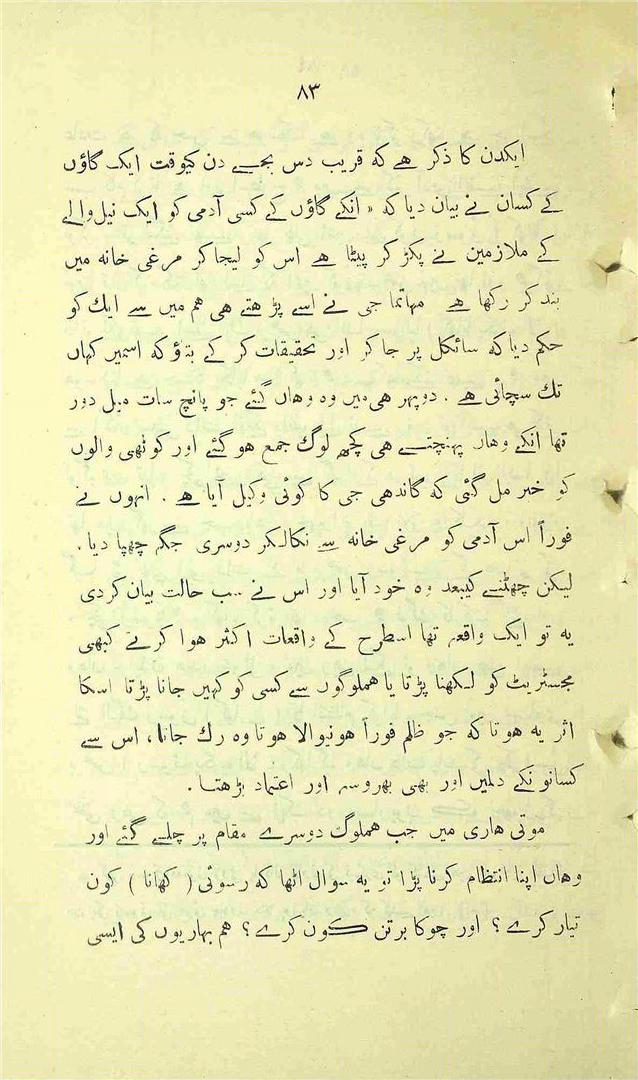 ۸۳
ایکدن کا ذکر ھے که قریب دس بجے دن کیوقت ایک گاؤں
کے کسان نے بیان دیا که « انکے گاؤں کے کسی آدمی کو ایک نیل والے
کے ملازمین نے پکڑ کر پیٹا ھے اس کو لیجا کر مرغی خانه میں
بند کر رکھا ھے مہاتما جی نے اسے پڑھتے ھی ھم میں سے ایك کو
حکم دیا که سائکل پر جا کر اور تحقیقات کر کے بتؤ که اسمیں کہاں
تك سچائی ھے . دوپہر ھی میں وہ وھاں گئے جو پانچ سات میل دور
تھا انکے وھاں پہنچتے ھی کچھ لوگ جمع ھو گئے اور کوٹھی والوں
کو خبر مل گئی که گاندھی جی کا کوئی وکیل آیا ھے . انہوں نے
فوراً اس آدمی کو مرغی خانه سے نکالکر دوسری جگه چھپا دیا .
لیکن چھٹنے کیبعد وہ خود آیا اور اس نے سب حالت بیان کردی
یه تو ایک واقعه تھا اسطرح کے واقعات اکثر ھوا کرتے کبھی
مجسٹریٹ کو لکھنا پڑتا یا ھملوگوں سے کسی کو کہیں جانا پڑتا اسکا
اثر یه ھوتا که جو ظلم فوراً ھونیوالا ھوتا وہ رك جاتا، اس سے
کسانو نکے دلمیں اور بھی بھروسه اور اعتماد بڑھتا .
موتی ھاری میں جب ھملوگ دوسرے مقام پر چلے گئے اور
وھاں اپنا انتظام کرنا پڑا تو یه سوال اٹھا که رسوئی ( کھانا ) کون
تیار کرے ؟ اور چوکا برتن کون کرے ؟ ھم بہاریوں کی ایسی